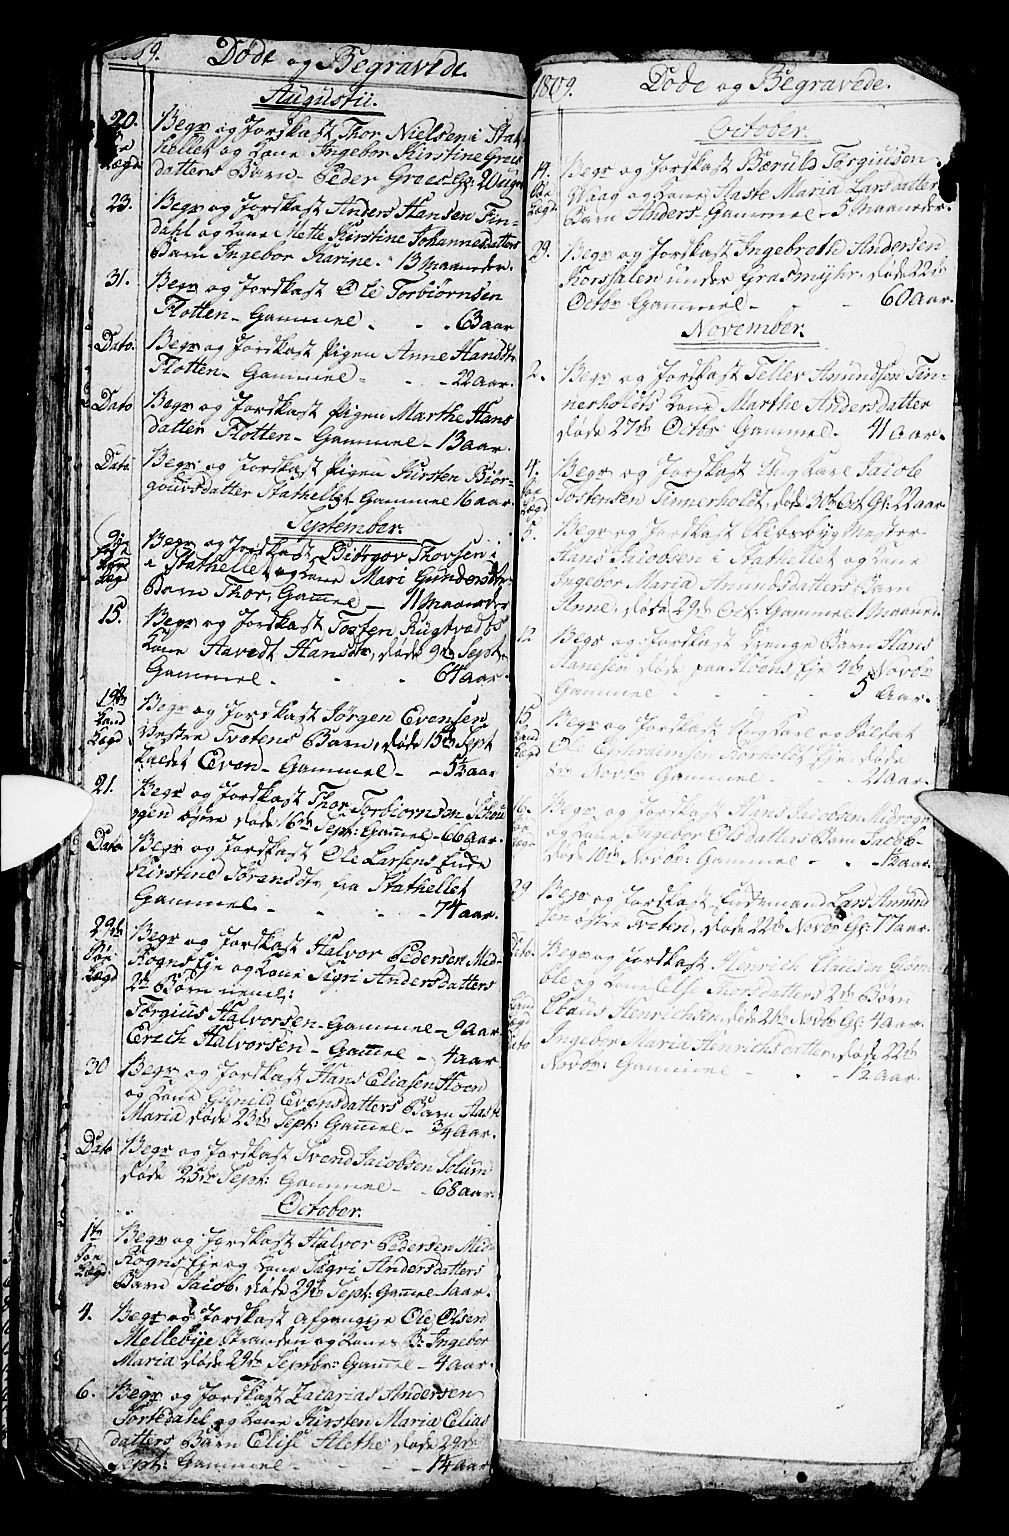 1809. Døde og Begravede.
Augustii.
20. Begr og Jordkast Thor Nielsen i Stat-
Søe hellet og Kone Ingebor Kirstine Graes
Lægd datters Barn Peder Graes G: 20 uger
23. Begr og Jordkast Anders Hansen Fin-
dahl og Kone Mette Kirstine Johannesdatters
Barn Ingebor Karine. 13 Maaneder.
31. Begr og Jordkast Ole Torbiørnsen
Flotten Gammel - 63 aar
Dato. Begr og Jordkast Pigen Anne Hansdtr
Flotten Gammel - 22 aar.
Dato Begr og Jordkast Pigen Marthe Hans
datter Flotten Gammel 13 aar.
Dato Begr og Jordkast Pigen Kirsten Biør-
datter Stathellet Gammel 16 aar.
September.
Begr og Jordkast Biørgov Thorsen i
i Stathellet og Kone Mari Gundersdtr
Lægd Barn Thor, Gamel 11 Maaneder
15. Begr og Jordkast Tosten Rugtvedts
Kone Havedt Hansdtr, døde 9de Sept:
Gammel - 64 aar.
19de Begr og Jordkast Jørgen Evensen
Land Vestre Tvetens Barn, døde 15de Sept
Lægd Kaldet Even Gammel - 5½ aar
21. Begr og Jordkast Thor Torbiørnsen Schou
ggen døde 16de Sept: Gamel - 66 aar.
Dato Begr og Jordkast Ole Larsens Enke
Kirstine Sørensdtr fra Stathellet
Gammel - 74 aar.
29de Begr og Jordkast Halvor Pedersen Mid-
Søe Rogns Eje og Kone Sigri Andersdatters
Lægd 2de Børn neml:
Torgius Halvorsen Gammel - 9 aar
Erich Halvorsen - Gamel - 4 aar
30 Begr og Jordkast Hans Eliasen Hven
og Kone Gunild Evensdatters Barn Aaste
Maria døde 23de Sept: Gamel - ¾ aar.
Dato Begr og Jordkast Svend Jacobsen Solum
døde 25de Sept: Gammel - 68 aar.
October.
1te Begr og Jordkast Halvor Pedersen Mid-
Søe Rogns Eje og Kone Sigri Andersdatters
Lægd. Barn Jacob. døde 29de Sept: Gamel 1 aar.
4. Begr og Jordkast afgangne Ole Olsen
Mellebye Stranden og Kones B: Ingebor
Maria døde 29de Septbr: Gamel - 4 aar.
6. Begr og Jordkast Zacarias Andersen
Tortedahl og Kone Kirsten Maria Elias
datters Barn Elise Alethe døde 29de
Sept: Gammel - 1¼ aar.
1809. Døde og Begravede.
October.
14. Begr og Jordkast Bæruld Torgiusen
Søe Waag og Kone Aaste Maria Larsdatter
Lægd Barn Anders Gammel - 5 Maaneder.
29. Begr og Jordkast Ingebreth Andersen
Korssalen under Grasmyhr. døde 22de
Octbr Gammel - 60 aar.
November.
2. Begr og Jordkast Tellev Amundsen Tin-
nerholdts Kone Marthe Andersdatter
døde 27de Octbr Gammel. 41 aar.
4. Begr og Jordkast Ung Karl Jacob
Søe Tostensen Tinnerholdt, døde 30te Oct G: 22 aar
Lægd
5. Begr og Jordkast Skibsbyg Mester
Hans Jacobsen i Stathellet og Kone
Ingebor Maria Amundsdatters Barn
Anne, døde 29de Oct: Gammel 1 Maaned.
12. Begr og Jordkast Drenge Barn Hans
Hansen døde paa Hvens Eje 4de Novbr
Gammel - 5 Aar.
15. Begr og Jordkast Ung Karl og Soldat
Land Ole Ephraimsen Eje, døde
Lægd Novbr Gammel - 21 Aar.
16. Begr og Jordkast Hans Jacobsen Midrogn
Søe og Kone Ingebor Elsdatters Barn Jacob
Lægd døde 10de Novbr: Gammel - 1½ aar.
29 Begr og Jordkast Enkemand Lars Amund
sen østre Tveten, døde 22de Novbr G: 77 aar.
Dito. Begr og Jordkast Henrich Clausen Grøm-
ble og Kone Else Thorsdatters 2de Børn
Land Claus Henrichsen, døde 21de Novbr G: 4 aar.
Lægd
Dato Ingebor Maria Henrichsdatter, døde 22de
Novbr: Gammel - 1½ aar.